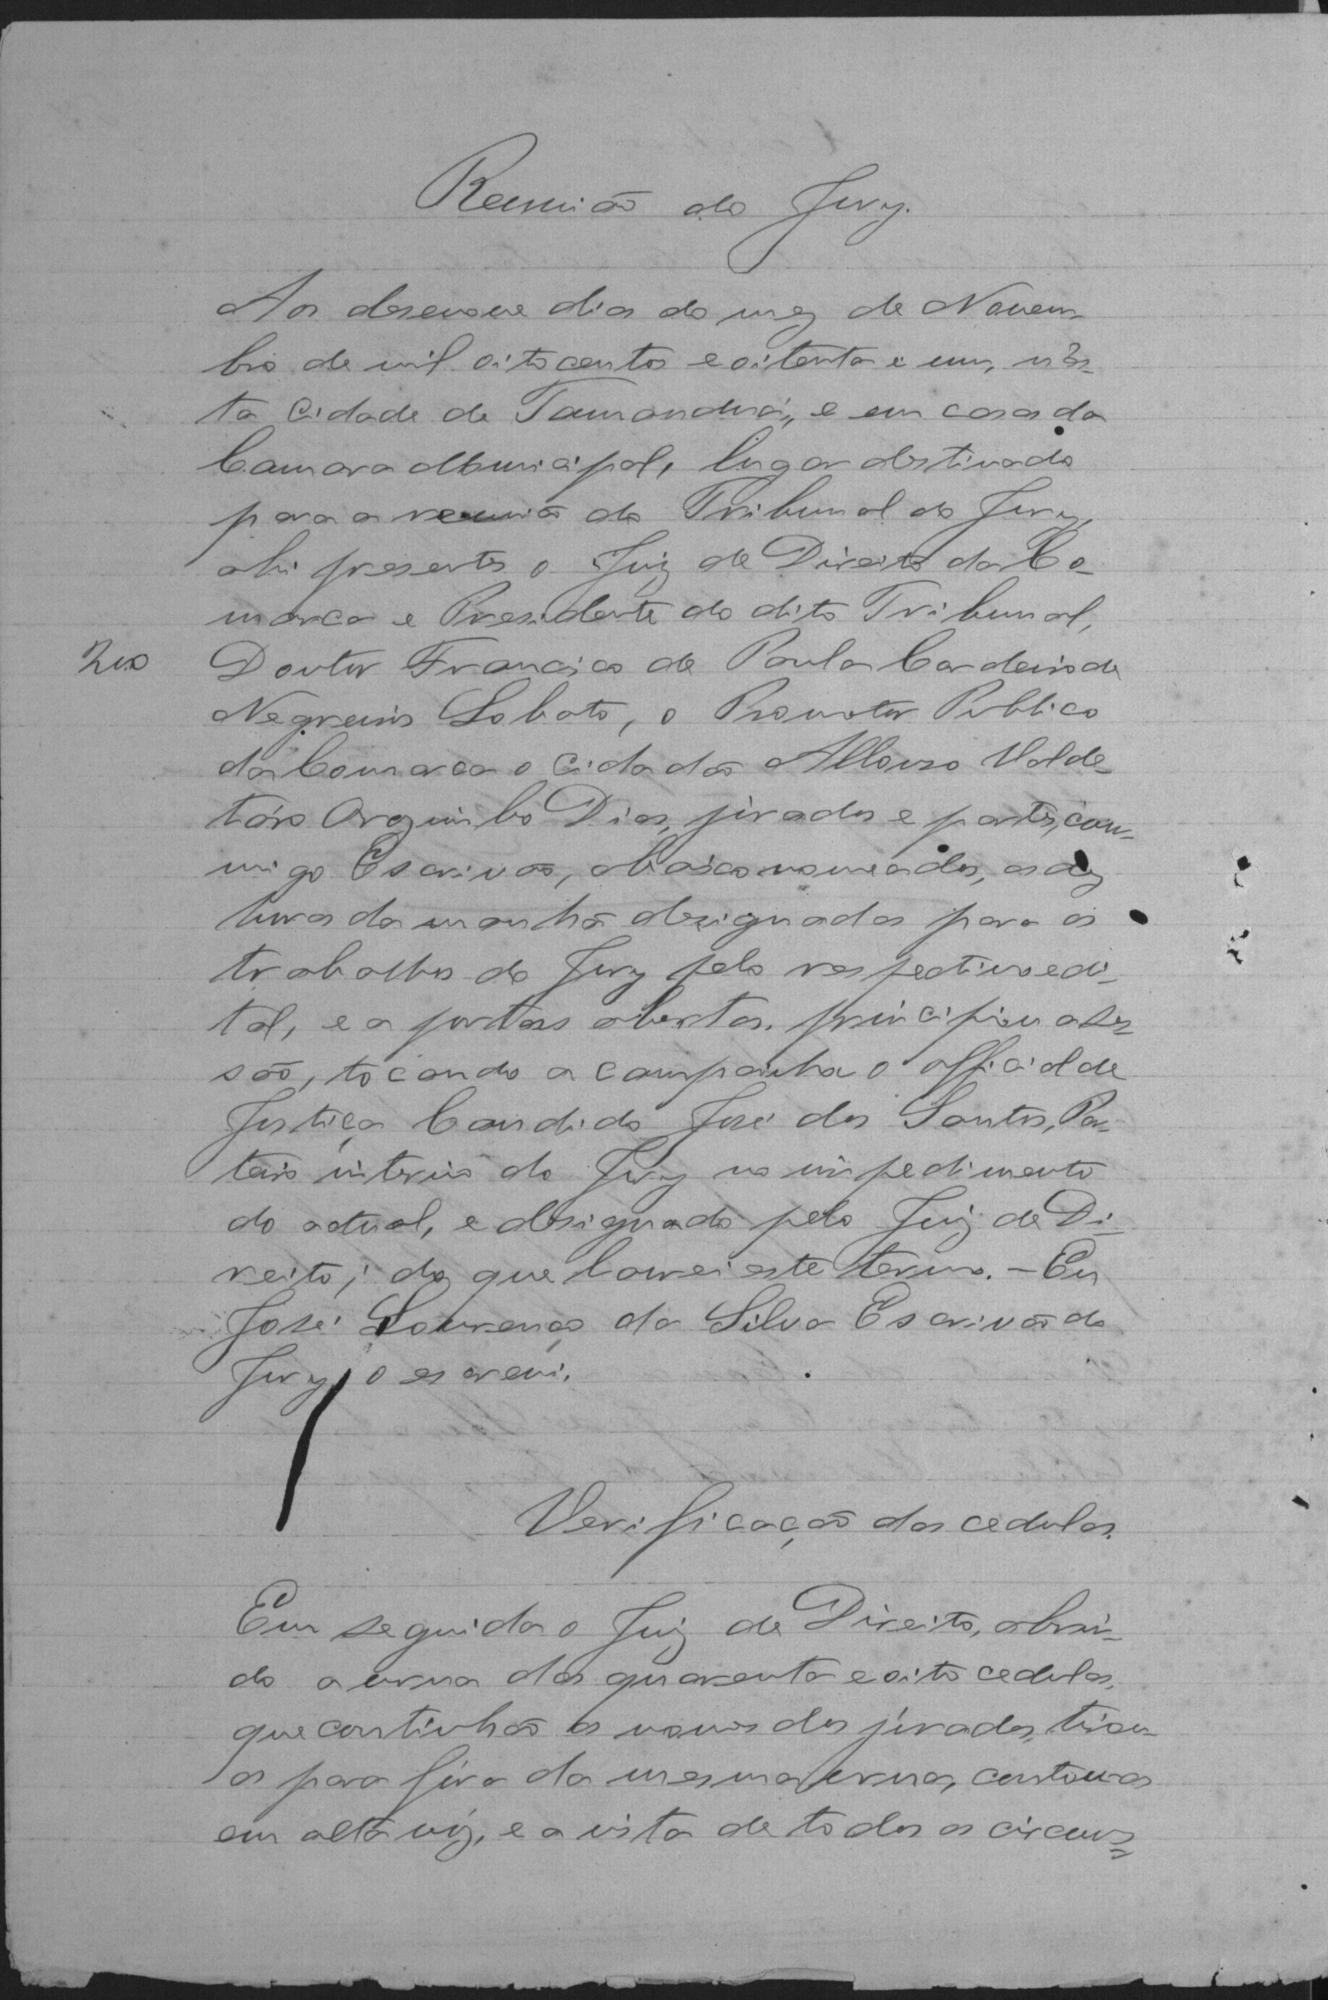 Reunião do Jury.
Aos desenove dias do mez de Novem-
bro de mil oitocentos e oitenta e um, nes-
ta Cidade de Tamanduá, e em casa da
Camara Municipal, lugar destinado
para a reunião do Tribunal do Jury,
ahi presentes o Juiz de Direito da Co-
marca e Presidente do dito Tribunal,
Doutor Francisco de Paula Cordeiro de
Negreiros Lobato, o Promotor Publico
da Comarca o Cidadão Affonso Valde-
táro Dias, jurados e partes, com-
migo Escrivão, abaixo nomeados, as dez
horas da manhã designadas para os
trabalhos do Jury pelo respectivo edi-
tal, e a portas abertas, principiou a ses-
são, tocando a campainha o official de
Justiça Candido José dos Santos, Por-
teiro interino do Jury no impedimento
do actual, e designado pelo Juiz de Di-
reito; do que lavrei este termo. - Eu
José Lourenço da Silva Escrivão do
Jury, o escrevi.
Verificação das cedulas.
Em seguida o Juiz de Direito, abrin-
do a urna das quarenta e oito cedulas,
que continhão os nomes dos jurados, tirou-
as para fóra da mesma urna, contou-as
em alta vóz, e a vista de todos os circuns-